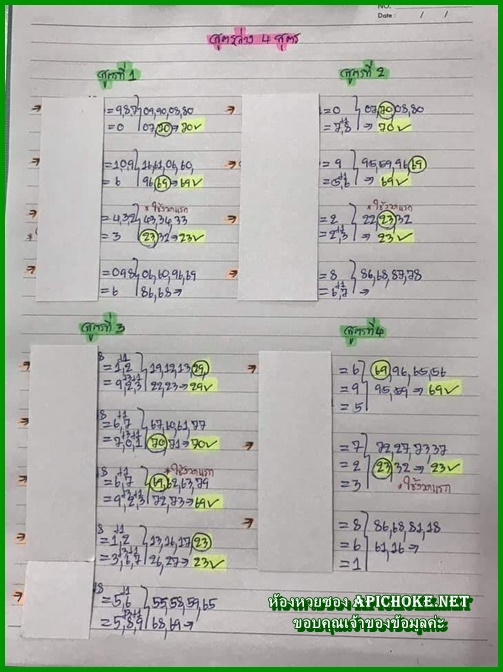 NO.
Date : / /
สูตรล่าง 4 สูตร
สูตรที่ 1
= 9,8,7 09,90,08,80
= 0 07,70→70✓
= 1,0,9 16,61,06,60,
= 6 96,69→69✓
* ใช้งวดแรก
= 4,3,2 43,34,33
= 3 23,32→23✓
= 0,9,8 06,60,96,69
= 6 86,68→
สูตรที่ 2
= 0 07,70,08,80
= 7,8 → 70✓
= 9 95,59,96,69
= 5,6 → 69✓
* ใช้งวดแรก
= 2 22,23,32
= 2,3 → 23✓
= 8 86,68,87,78
= 6,7 →
สูตรที่ 3
8 +1
= 1,2 19,12,13,29,
= 9,2,3 22,23→29✓
8 +1
= 6,7 67,60,61,77
= 7,0,1 70,71→70✓
* ใช้งวดแรก
8 +1
= 6,7 69,62,63,79
= 9,2,3 72,73→69✓
8 +1
= 1,2 13,16,17,23
= 3,6,7 26,27→23✓
8 +1
= 5,6 55,58,59,65
= 5,8,9 68,69→
สูตรที่ 4
= 6 69,96,65,56
= 9 95,59→69✓
= 5
= 7 72,27,73,37
= 2 23,32→23✓
= 3 * ใช้งวดแรก
= 8 86,68,81,18
= 6 61,16→
= 1
ห้องหวยซอง APICHOKE.NET
ขอบคุณเจ้าของข้อมูลค่ะ